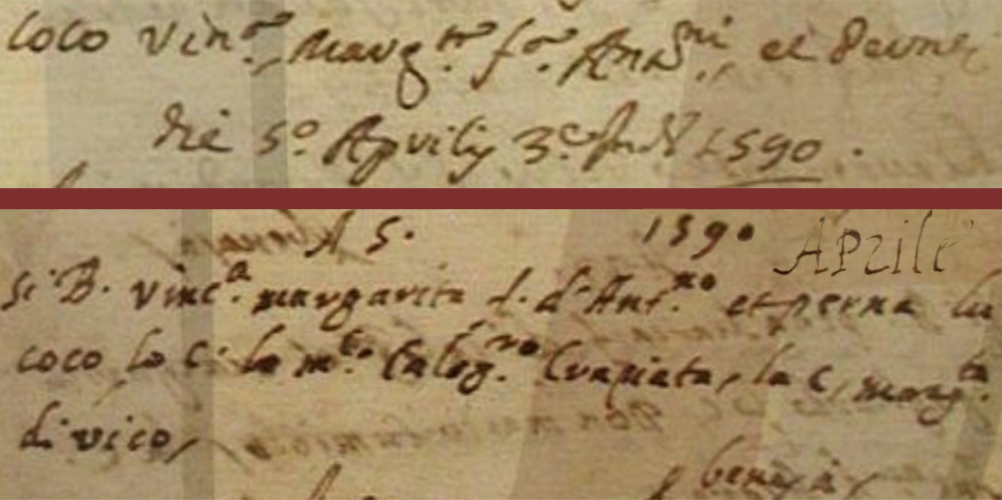 Coco Vin.ᵃ, Marg.ᵗᵃ f.ᵃ Ant.ⁿⁱ, et
die 5º Aprilis 3.ᵉ Ind. 1590.
A 5. 1590 Aprile
Si B. vinc.ᵃ margarita f. d'Ant.ⁿᵒ et perna lu
coco lo C: lo m.ᶜᵒ Calog.ʳᵒ la C, marg.ᵗᵃ
di vico,